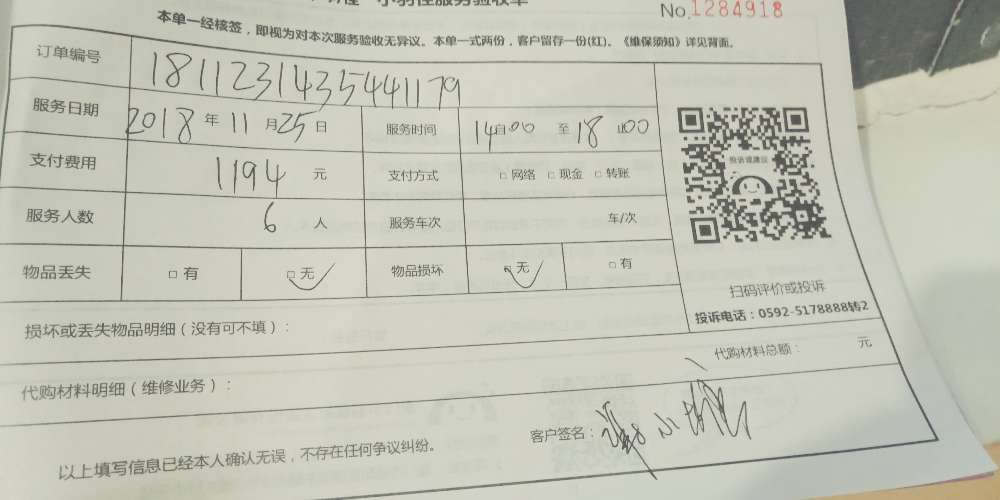 小羽佳服务验收单
No.1284918
本单一经核签，即视为对本次服务验收无异议。本单一式两份，客户留存一份(红)。《维保须知》详见背面。
订单编号 1811231435441179
服务日期 2018 年 11 月 25 日 服务时间 14 00 至 18 00
支付费用 1194 元 支付方式 □ 网络 □ 现金 □ 转账
投诉或建议
服务人数 6 人 服务车次 车/次
物品丢失 □ 有 □ 无 物品损坏 □ 无 □ 有
扫码评价或投诉
投诉电话：0592-5178888转2
损坏或丢失物品明细（没有可不填）：
代购材料明细（维修业务）： 代购材料总额： 元
客户签名：
以上填写信息已经本人确认无误，不存在任何争议纠纷。